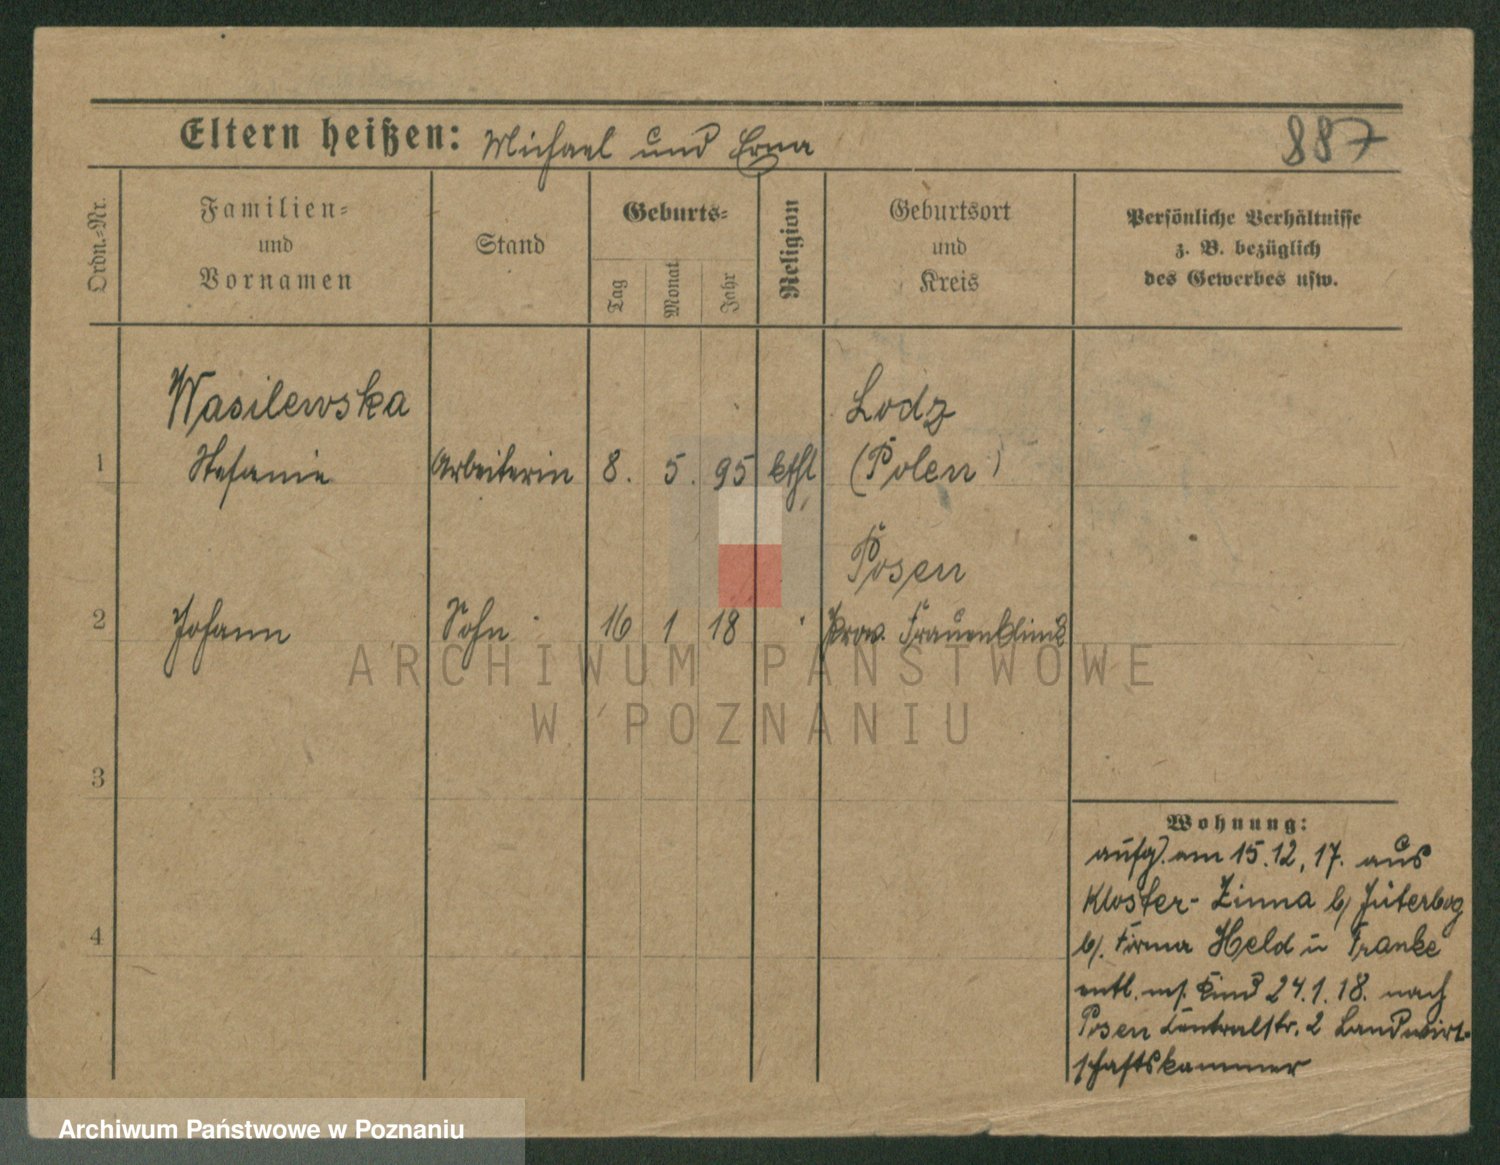 Eltern heißen: Michael und Erna
887
Ordn.-Nr.
Familien-
und
Vornamen
Stand
Geburts-
Tag
Monat
Jahr
Religion
Geburtsort
und
Kreis
Persönliche Verhältnisse
z. B. bezüglich
des Gewerbes usw.
Wasilewska
Lodz
1 Stefanie Arbeiterin 8. 5. 95 kthl (Polen)
Posen
2 Johann Sohn 16 1 18 Prov. Frauenklinik
3
4
Wohnung:
aufg. am 15.12.17. aus
Kloster-Zinna b/ Jüterbog
b/. Firma Held u Franke
entl. m/. Kind 24.1.18. nach
Posen Centralstr. 2 Landwirt-
schaftskammer
ARCHIWUM PAŃSTWOWE
W POZNANIU
Archiwum Państwowe w Poznaniu